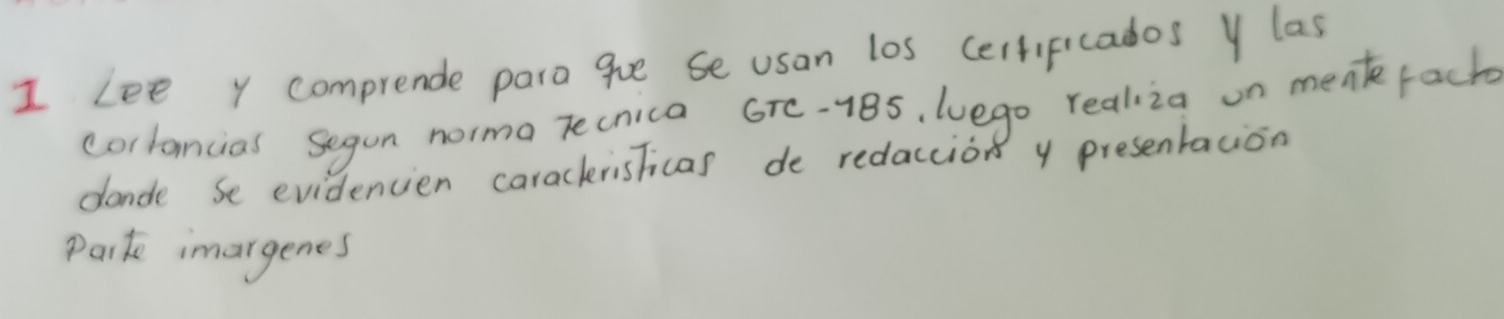 I Lee y comprende para que se usan los certificados y las
cortancias segun norma Tecnica GTC-185. luego realiza un mentefacto
donde se evidencien caracteristicas de redacción y presentación
Parte imargenes